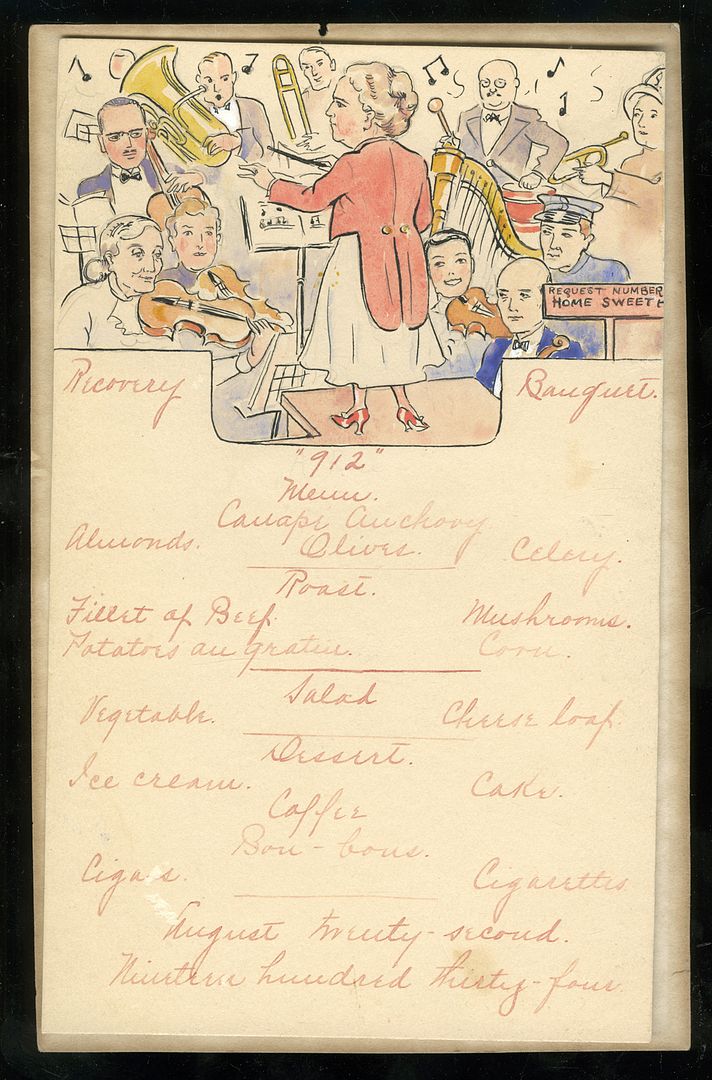 REQUEST NUMBER
HOME SWEET H
Recovery Banquet.
"912"
Menu.
Canape Anchovy
Almonds. Olives. Celery.
Roast.
Fillet of Beef. Mushrooms.
Potatoes au gratin. Corn.
Salad
Vegetable. Cheese loaf.
Dessert.
Ice cream. Cake.
Coffee
Bon-bons.
Cigars. Cigarettes
August twenty-second.
Nineteen hundred thirty-four